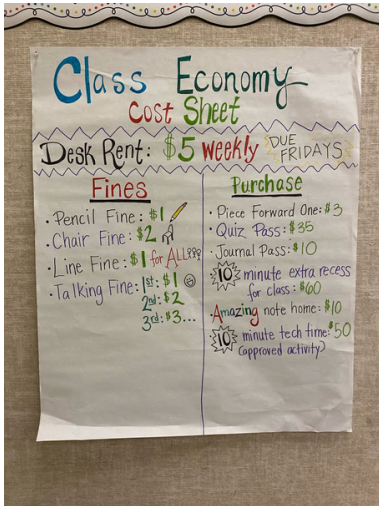 Class Economy
Cost Sheet
Desk Rent: $5 weekly DUE FRIDAYS
Fines
· Pencil Fine: $1
· Chair Fine: $2
· Line Fine: $1 for ALL
· Talking Fine: 1st: $1
2nd: $2
3rd: $3...
Purchase
· Piece Forward One: $3
· Quiz Pass: $35
· Journal Pass: $10
10 minute extra recess
for class: $60
· Amazing note home: $10
10 minute tech time: $50
(approved activity)